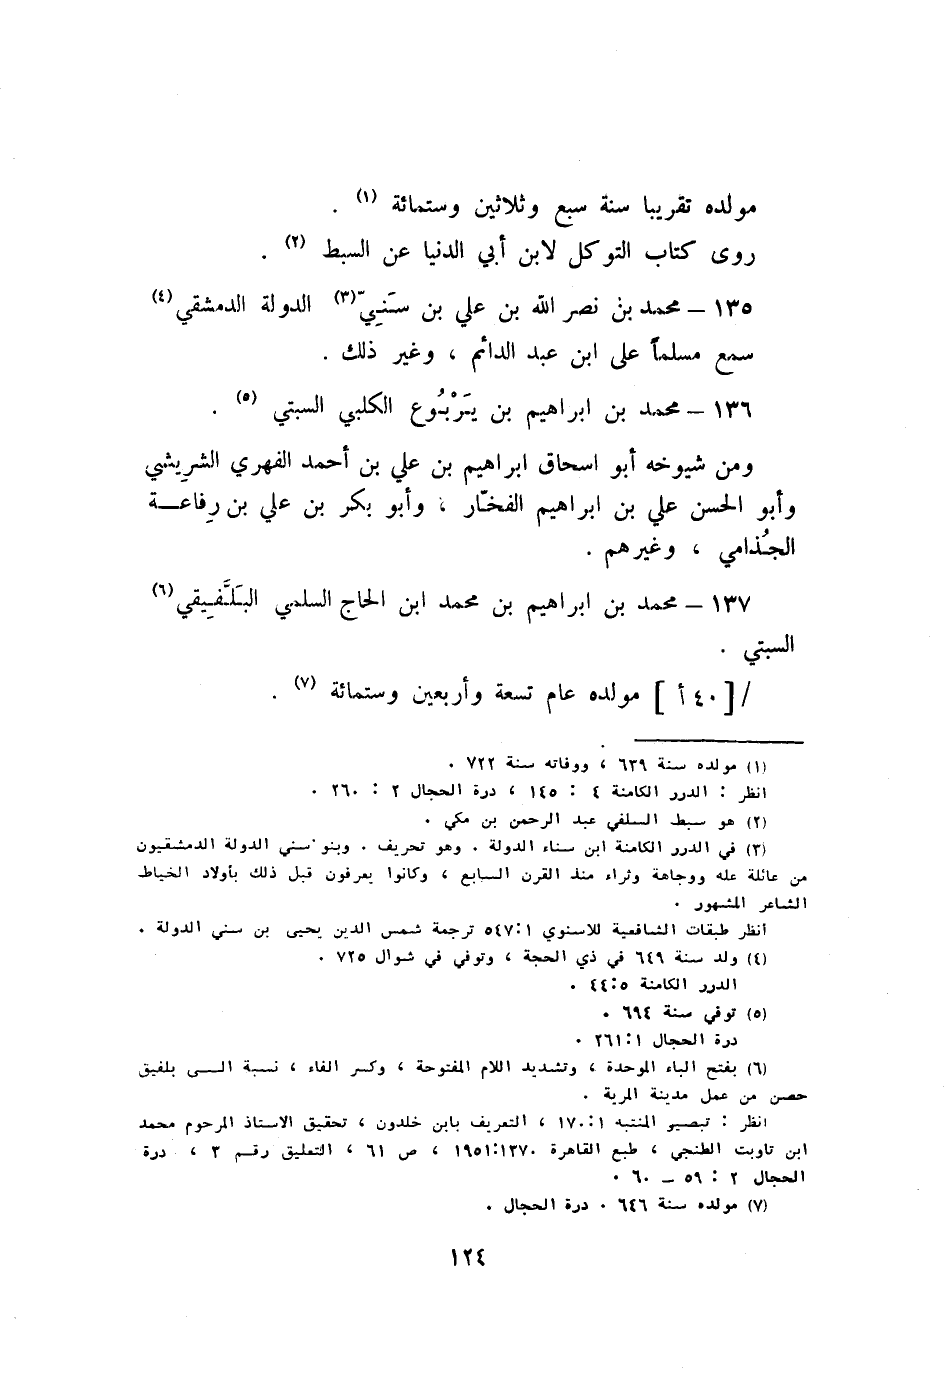 مولده تقريبا سنة سبع وثلاثين وستمائة (١) .
روى كتاب التوكل لابن أبي الدنيا عن السبط (٢) .
١٣٥ – محمد بن نصر الله بن علي بن سَنَيِّ (٣) الدولة الدمشقي (٤)
سمع مسلماً على ابن عبد الدائم ، وغير ذلك .
١٣٦ – محمد بن ابراهيم بن يَرْبُوع الكلبي السبتي (٥) .
ومن شيوخه أبو اسحاق ابراهيم بن علي بن أحمد الفهري الشريشي
وأبو الحسن علي بن ابراهيم الفخّار ، وأبو بكر بن علي بن رِفاعــة
الجُذامي ، وغيرهم .
١٣٧ – محمد بن ابراهيم بن محمد ابن الحاج السلمي البَلَّفِيقي (٦)
السبتي .
/ [ ٤٠ أ ] مولده عام تسعة وأربعين وستمائة (٧) .
(١) مولده سنة ٦٣٩ ، ووفاته سنة ٧٢٢ .
انظر : الدرر الكامنة ٤ : ١٤٥ ، درة الحجال ٢ : ٢٦٠ .
(٢) هو سبط السلفي عبد الرحمن بن مكي .
(٣) في الدرر الكامنة ابن سناء الدولة . وهو تحريف . وبنو سني الدولة الدمشقيون
من عائلة عله ووجاهة وثراء منذ القرن السابع ، وكانوا يعرفون قبل ذلك بأولاد الخياط
الشاعر المشهور .
أنظر طبقات الشافعية للاسنوي ٥٤٧:١ ترجمة شمس الدين يحيى بن سني الدولة .
(٤) ولد سنة ٦٤٩ في ذي الحجة ، وتوفي في شوال ٧٢٥ .
الدرر الكامنة ٤٤:٥ .
(٥) توفي سنة ٦٩٤ .
درة الحجال ٢٦١:١ .
(٦) بفتح الباء الموحدة ، وتشديد اللام المفتوحة ، وكسر الفاء ، نسبة الــى بلفيق
حصن من عمل مدينة المرية .
انظر : تبصير المنتبه ١٧٠:١ ، التعريف بابن خلدون ، تحقيق الاستاذ المرحوم محمد
ابن تاويت الطنجي ، طبع القاهرة ١٩٥١:١٣٧٠ ، ص ٦١ ، التعليق رقــم ٣ ، درة
الحجال ٢ : ٥٩ – ٦٠ .
(٧) مولده سنة ٦٤٦ . درة الحجال .
١٢٤